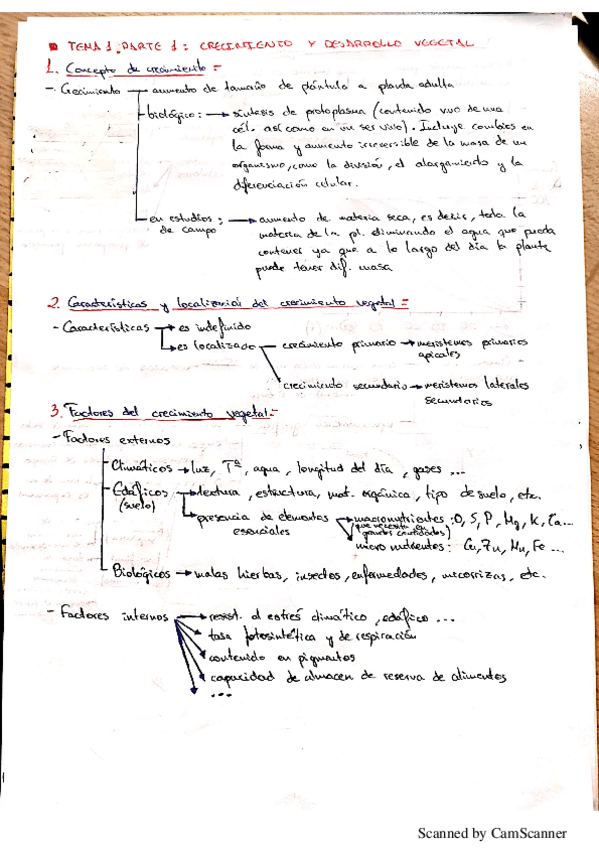 TEMA 1. PARTE 1: CRECIMIENTO Y DESARROLLO VEGETAL
1. Concepto de crecimiento =
- Crecimiento → aumento de tamaño de plántula a planta adulta
biológico: → síntesis de protoplasma (contenido vivo de una
cél. así como en un ser vivo). Incluye cambios en
la forma y aumento irreversible de la masa de un
organismo, como la división, el alargamiento y la
diferenciación celular.
en estudios → aumento de materia seca, es decir, toda la
de campo
materia de la pl. eliminando el agua que pueda
contener ya que a lo largo del día la planta
puede tener dif. masa
2. Características y localización del crecimiento vegetal =
- Características → es indefinido
→ es localizado → crecimiento primario → meristemos primarios
apicales
crecimiento secundario → meristemos laterales
secundarios
3. Factores del crecimiento vegetal =
- Factores externos
Climáticos → luz, Tª, agua, longitud del día, gases ...
Edáficos → textura, estructura, mat. orgánica, tipo de suelo, etc.
(suelo)
presencia de elementos → macronutrientes: O, S, P, Mg, K, Ca...
esenciales
(que necesita en
grandes cantidades)
micronutrientes: Cu, Zn, Mn, Fe ...
Biológicos → malas hierbas, insectos, enfermedades, micorrizas, etc.
- Factores internos → resist. al estrés climático, edáfico ...
tasa fotosintética y de respiración
contenido en pigmentos
capacidad de almacen de reserva de alimentos
...
Scanned by CamScanner